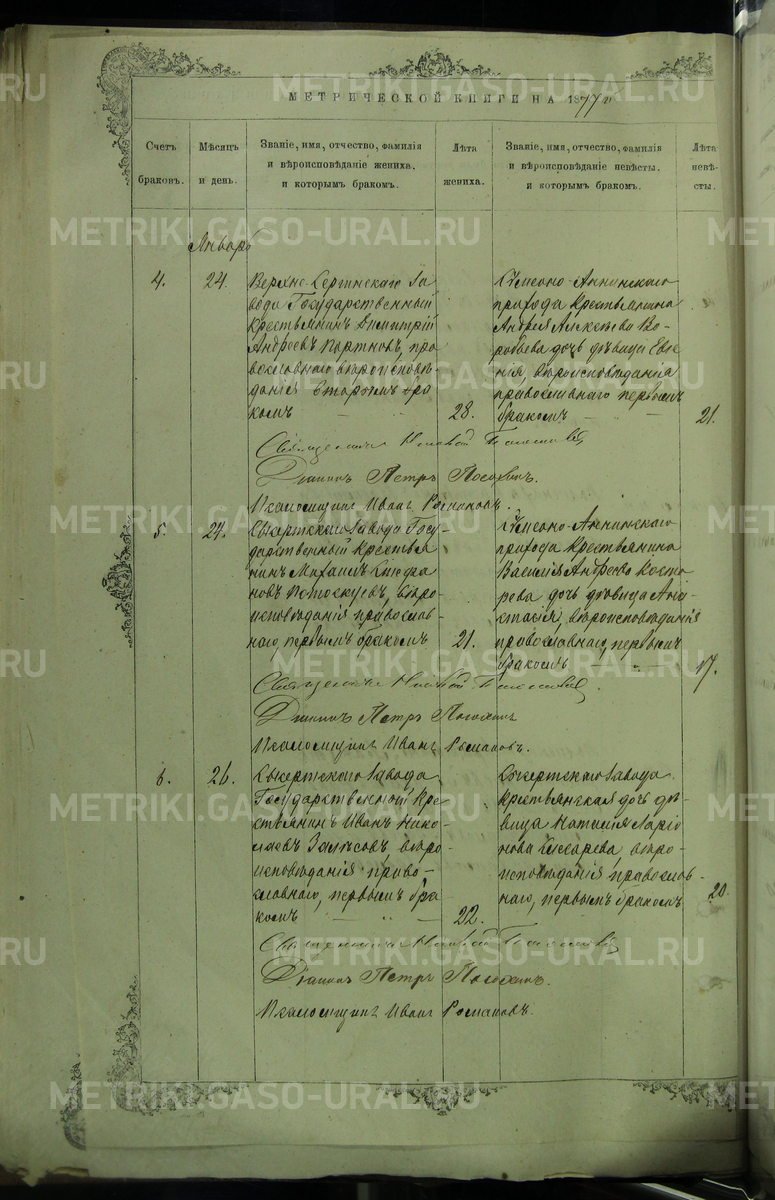 МЕТРИЧЕСКОЙ КНИГИ НА 1877 г.
Счетъ браковъ.
Мѣсяцъ и день.
Званіе, имя, отчество, фамилія
и вѣроисповѣданіе жениха,
и которымъ бракомъ.
Лѣта жениха.
Званіе, имя, отчество, фамилія
и вѣроисповѣданіе невѣсты,
и которымъ бракомъ.
Лѣта невѣ-
сты.
Январь
4.
24.
Верхне-Сергинскаго За
вода Государственный
крестьянинъ Димитрій
Андреевъ Портновъ, пра
вославнаго вѣроисповѣ-
данія вторымъ бра
комъ
28.
Симеоно-Аннинскаго
прихода крестьянина
Андрея Алексѣева Во-
робьева дочь дѣвица Евге
нія, вѣроисповѣданія
православнаго первымъ
бракомъ
21.
Священникъ
Діаконъ Петръ
Псаломщикъ Иванъ Романовъ.
5.
24.
Сысертскаго Завода Госу-
дарственный крестья
нинъ Михаилъ Стефа
новъ Потоскуевъ, вѣро-
исповѣданія православ-
наго, первымъ бракомъ
21.
Симеоно-Аннинскаго
прихода крестьянина
Василія Андреева Косты
рева дочь дѣвица Ана
стасія, вѣроисповѣданія
православнаго, первымъ
бракомъ
17.
Священникъ
Діаконъ Петръ
Псаломщикъ Иванъ Романовъ.
6.
26.
Сысертскаго Завода
Государственный кре
стьянинъ Иванъ Нико
лаевъ Залѣсовъ, вѣро
исповѣданія право-
славнаго, первымъ бра
комъ
22.
Сысертскаго Завода
крестьянская дочь дѣ-
вица Наталія Ларіо
нова вѣро-
исповѣданія православ-
наго, первымъ бракомъ
20.
Священникъ
Діаконъ Петръ
Псаломщикъ Иванъ Романовъ.
METRIKI.GASO-URAL.RU